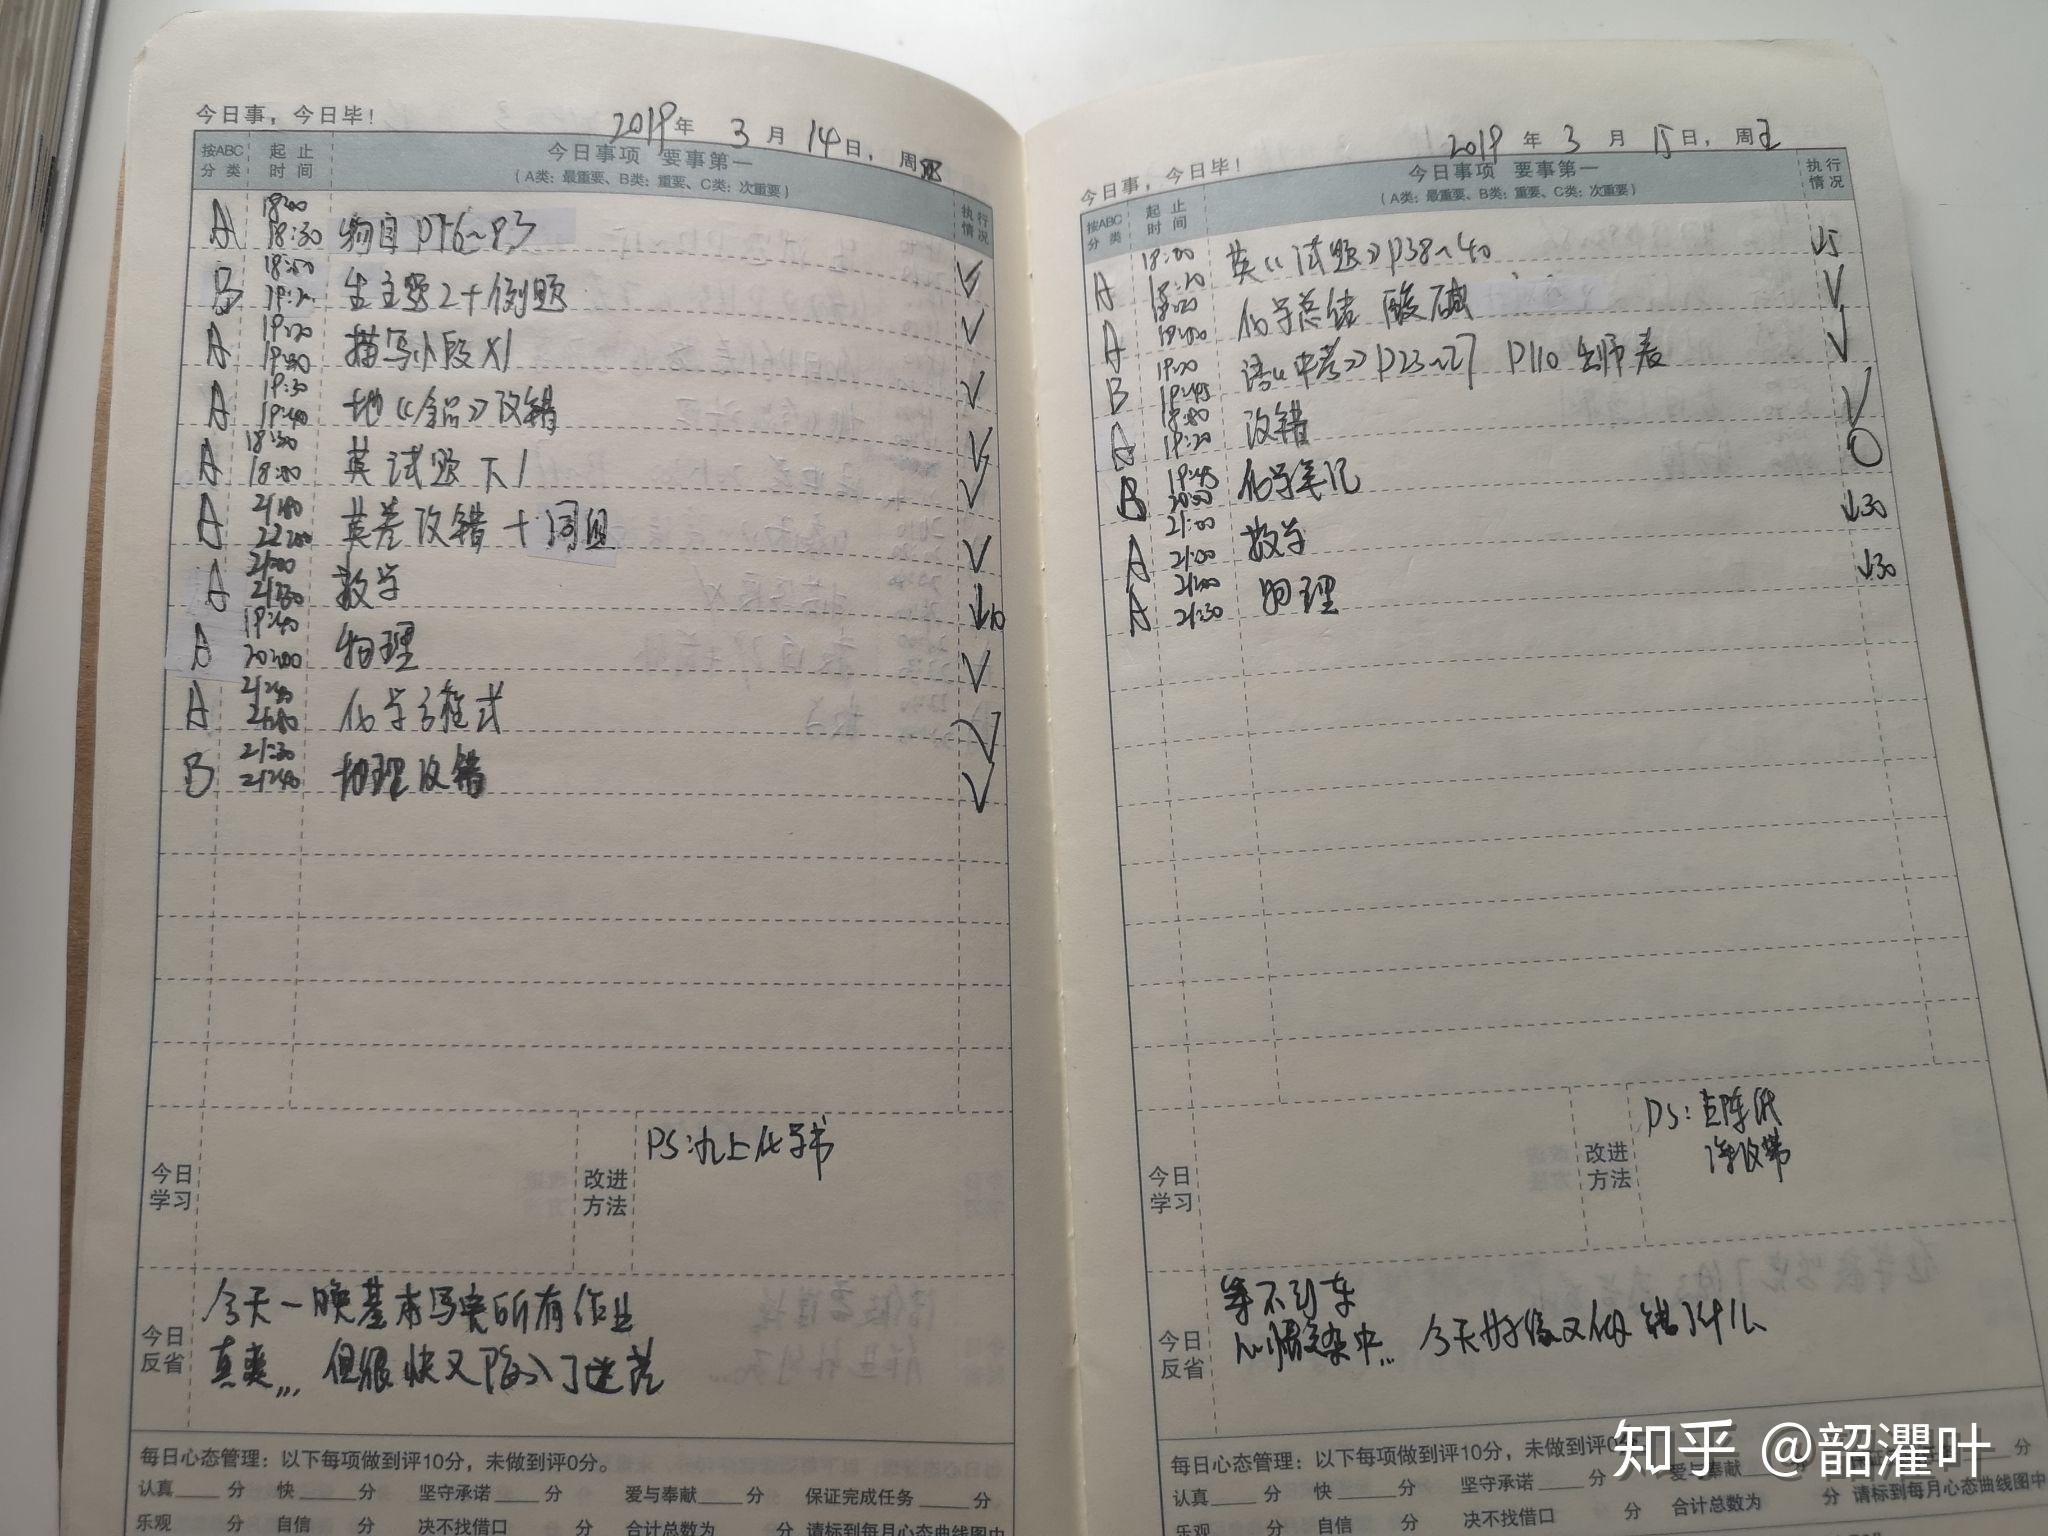 今日事，今日毕！
2019年 3月 14日，周
按ABC分类 起止时间 今日事项 要事第一 执行情况
（A类：最重要、B类：重要、C类：次重要）
A 18:00 18:30 物自 P76~83
B 19:20 生主题2+例题 √
A 19:20 19:30 描写小段X1 √
A 19:30 19:40 地《全品》改错 √
A 18:30 英试题下1 √
A 21:40 22:00 英卷改错+词组 √
A 21:00 21:30 数学 √
A 19:40 20:00 物理 ↓10
A 化学方程式 √
B 21:30 21:40 物理改错 √
√
今日学习
改进方法
PS:九上化学书
今日反省
今天一晚基本写完所有作业
真爽... 但很快又陷入了迷茫
每日心态管理：以下每项做到评10分，未做到评0分。
认真 分 快 分 坚守承诺 分 爱与奉献 分 保证完成任务 分
乐观 分 自信 分 决不找借口 分 合计总数为 分 请标到每月心态曲线图中
今日事，今日毕！
2019年 3月 15日，周五
按ABC分类 起止时间 今日事项 要事第一 执行情况
（A类：最重要、B类：重要、C类：次重要）
A 18:00 18:20 英《试题》P38~40 ↓5
A 18:20 化学总结 酸碱 √
B 19:20 19:45 语《中考》P23~27 P110 出师表 √
A 19:20 改错 √
B 19:45 20:00 化学笔记 O
A 21:00 数学 ↓30
A 21:00 21:30 物理 ↓30
今日学习
改进方法
PS:
今日反省
等不到车
心情复杂中... 今天好像又做错了什么
每日心态管理：以下每项做到评10分，未做到评0分。
认真 分 快 分 坚守承诺 分 爱与奉献 分 分
乐观 分 自信 分 决不找借口 分 合计总数为 分 请标到每月心态曲线图中
知乎 @韶灈叶